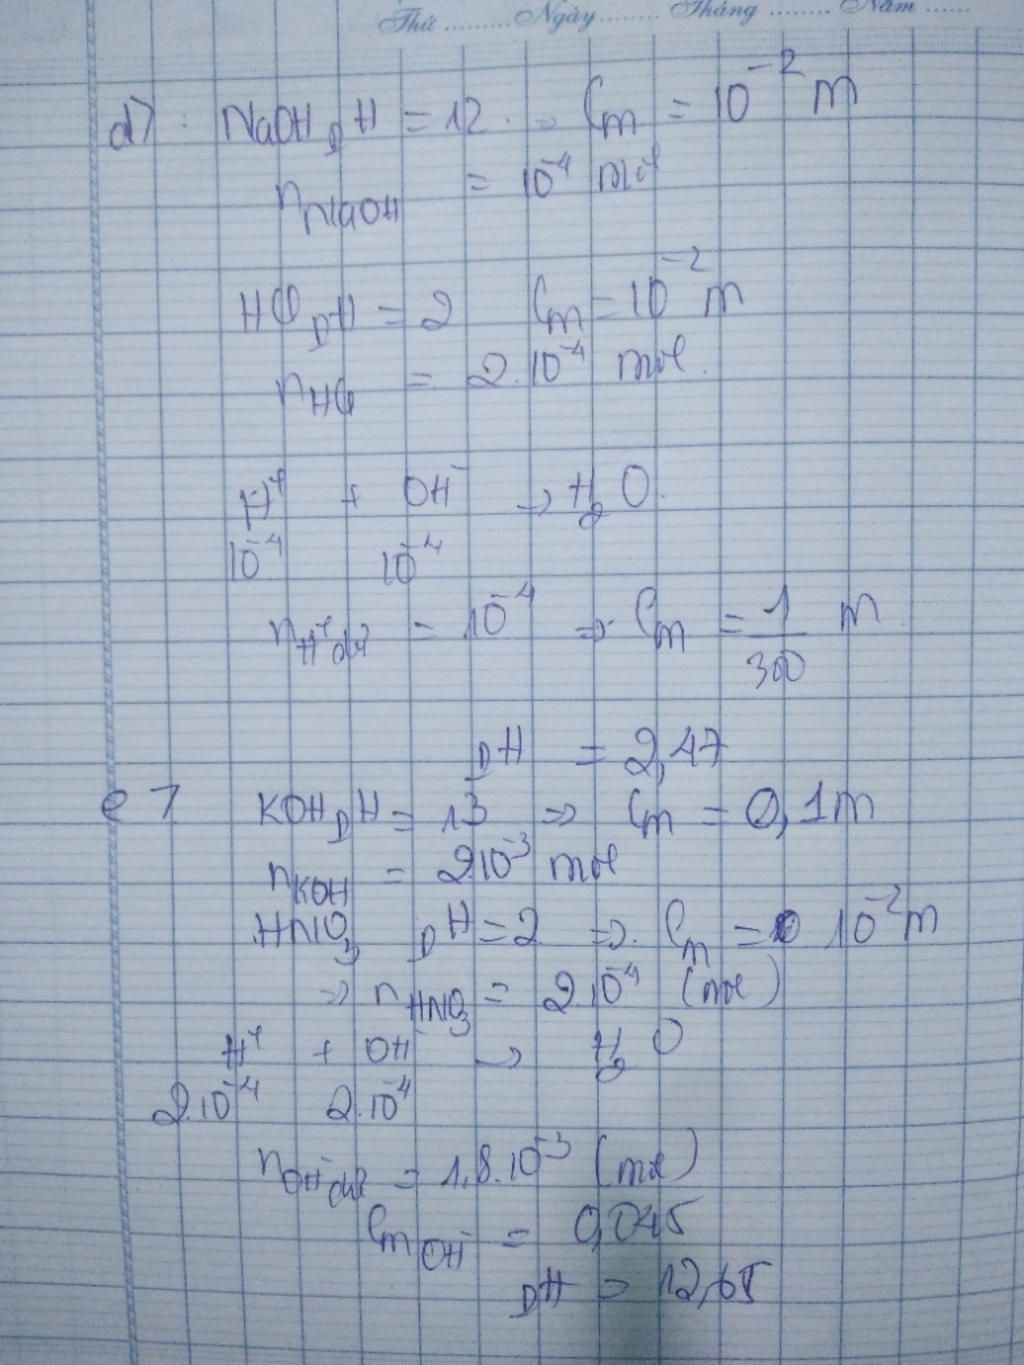 Thứ ......... Ngày ........ Tháng ........ Năm ......
d) NaOH pH = 12 → Cm = 10⁻² M
nNaOH = 10⁻⁴ mol
HCl pH = 2 Cm = 10⁻² M
nHCl = 2.10⁻⁴ mol.
H⁺ + OH⁻ → H₂O
10⁻⁴ 10⁻⁴
nH⁺ dư = 10⁻⁴ ⇒ Cm = 1/300 M
pH = 2,47
e) KOH pH = 13 ⇒ Cm = 0,1 M
nKOH = 2.10⁻³ mol
HNO₃ pH = 2 ⇒ Cm = 10⁻² M
⇒ nHNO₃ = 2.10⁻⁴ (mol)
H⁺ + OH⁻ → H₂O
2.10⁻⁴ 2.10⁻⁴
nOH⁻ dư = 1,8.10⁻³ (mol)
Cm OH⁻ = 0,045
pH = 12,65